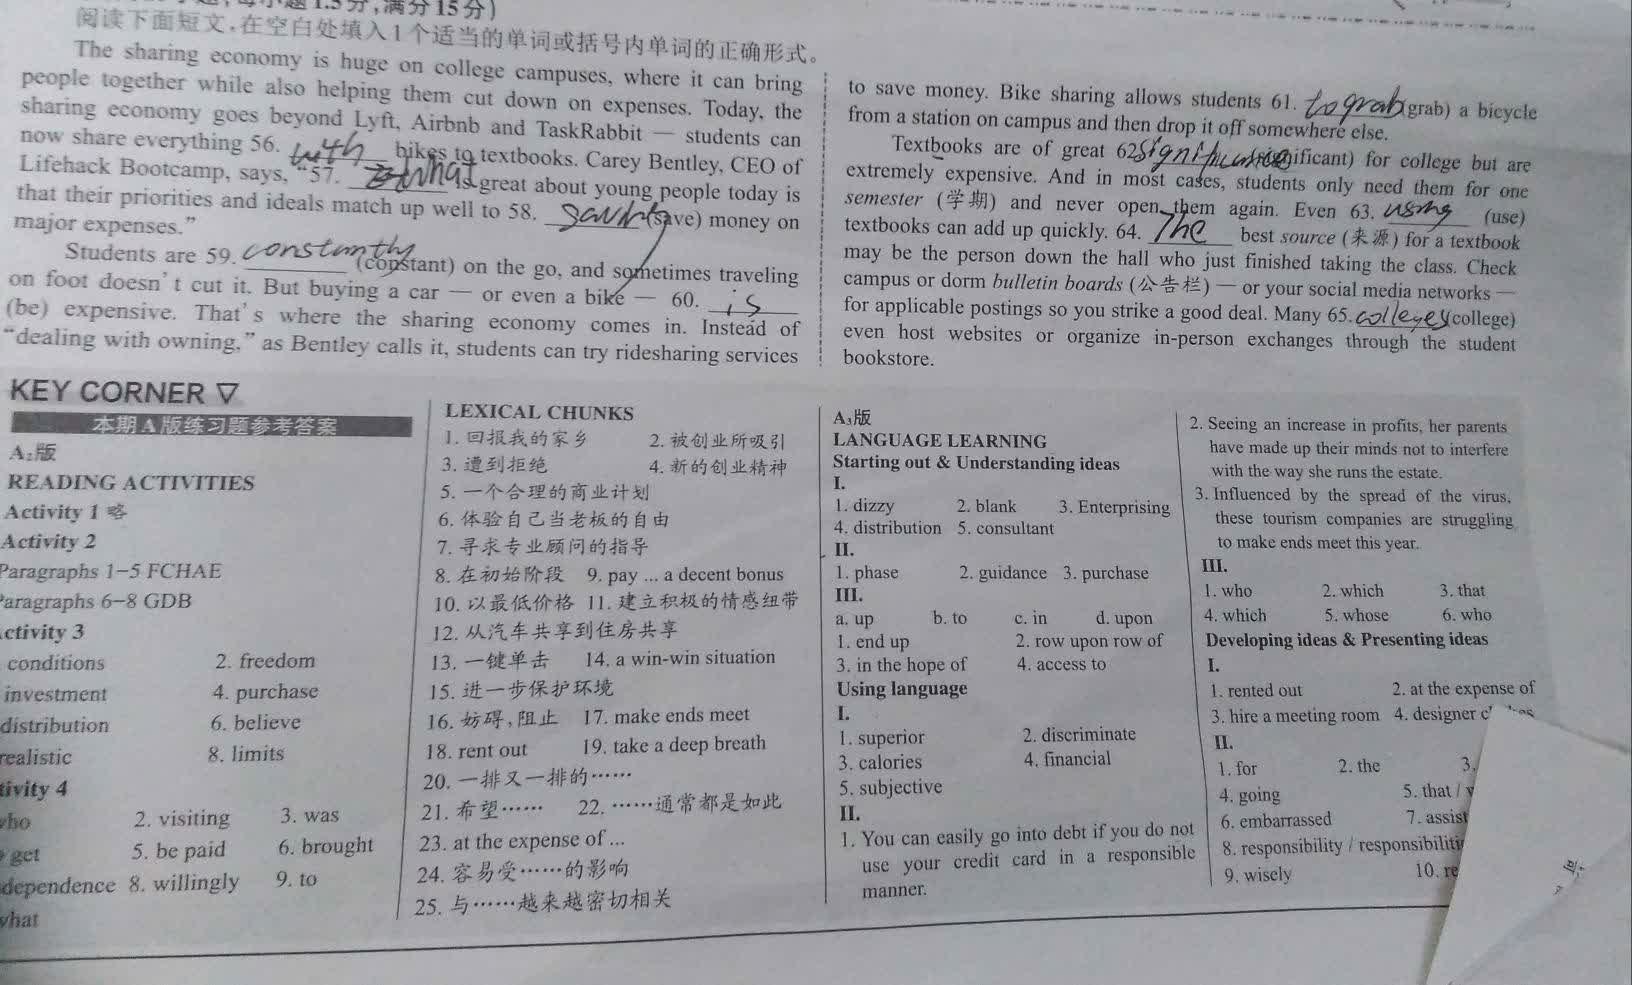 满分15分)
阅读下面短文,在空白处填入1个适当的单词或括号内单词的正确形式。
The sharing economy is huge on college campuses, where it can bring
people together while also helping them cut down on expenses. Today, the
sharing economy goes beyond Lyft, Airbnb and TaskRabbit — students can
now share everything 56. with bikes to textbooks. Carey Bentley, CEO of
Lifehack Bootcamp, says, "57. What is great about young people today is
that their priorities and ideals match up well to 58. (save) money on
major expenses."
Students are 59. constantly (constant) on the go, and sometimes traveling
on foot doesn't cut it. But buying a car — or even a bike — 60. is
(be) expensive. That's where the sharing economy comes in. Instead of
"dealing with owning," as Bentley calls it, students can try ridesharing services
to save money. Bike sharing allows students 61. to grab (grab) a bicycle
from a station on campus and then drop it off somewhere else.
Textbooks are of great 62. for college but are
extremely expensive. And in most cases, students only need them for one
semester (学期) and never open them again. Even 63. using (use)
textbooks can add up quickly. 64. The best source (来源) for a textbook
may be the person down the hall who just finished taking the class. Check
campus or dorm bulletin boards (公告栏) — or your social media networks —
for applicable postings so you strike a good deal. Many 65. colleges (college)
even host websites or organize in-person exchanges through the student
bookstore.
KEY CORNER ▽
本期A版练习题参考答案
A₂版
READING ACTIVITIES
Activity 1 略
Activity 2
Paragraphs 1–5 FCHAE
Paragraphs 6–8 GDB
ctivity 3
conditions 2. freedom
investment 4. purchase
distribution 6. believe
realistic 8. limits
tivity 4
who 2. visiting 3. was
get 5. be paid 6. brought
dependence 8. willingly 9. to
what
LEXICAL CHUNKS
1. 回报我的家乡 2. 被创业所吸引
3. 遭到拒绝 4. 新的创业精神
5. 一个合理的商业计划
6. 体验自己当老板的自由
7. 寻求专业顾问的指导
8. 在初始阶段 9. pay ... a decent bonus
10. 以最低价格 11. 建立积极的情感纽带
12. 从汽车共享到住房共享
13. 一键单击 14. a win-win situation
15. 进一步保护环境
16. 妨碍,阻止 17. make ends meet
18. rent out 19. take a deep breath
20. 一排又一排的……
21. 希望…… 22. ……通常都是如此
23. at the expense of ...
24. 容易受……的影响
25. 与……越来越密切相关
A₃版
LANGUAGE LEARNING
Starting out & Understanding ideas
I.
1. dizzy 2. blank 3. Enterprising
4. distribution 5. consultant
II.
1. phase 2. guidance 3. purchase
III.
a. up b. to c. in d. upon
1. end up 2. row upon row of
3. in the hope of 4. access to
Using language
I.
1. superior 2. discriminate
3. calories 4. financial
5. subjective
II.
1. You can easily go into debt if you do not
use your credit card in a responsible
manner.
2. Seeing an increase in profits, her parents
have made up their minds not to interfere
with the way she runs the estate.
3. Influenced by the spread of the virus,
these tourism companies are struggling
to make ends meet this year.
III.
1. who 2. which 3. that
4. which 5. whose 6. who
Developing ideas & Presenting ideas
I.
1. rented out 2. at the expense of
3. hire a meeting room 4. designer
II.
1. for 2. the 3.
4. going 5. that /
6. embarrassed 7. assist
8. responsibility / responsibiliti
9. wisely 10. re